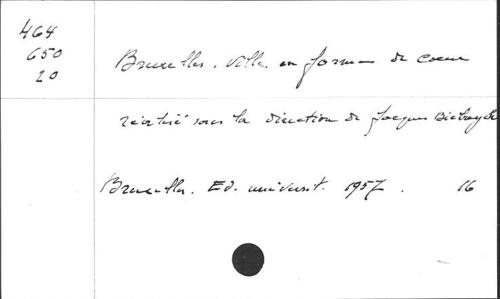 464
650
20
Bruxelles. Ville en forme de coeur
réalisé sous la direction de Jacques
Bruxelles. Ed. universit. 1957. 16